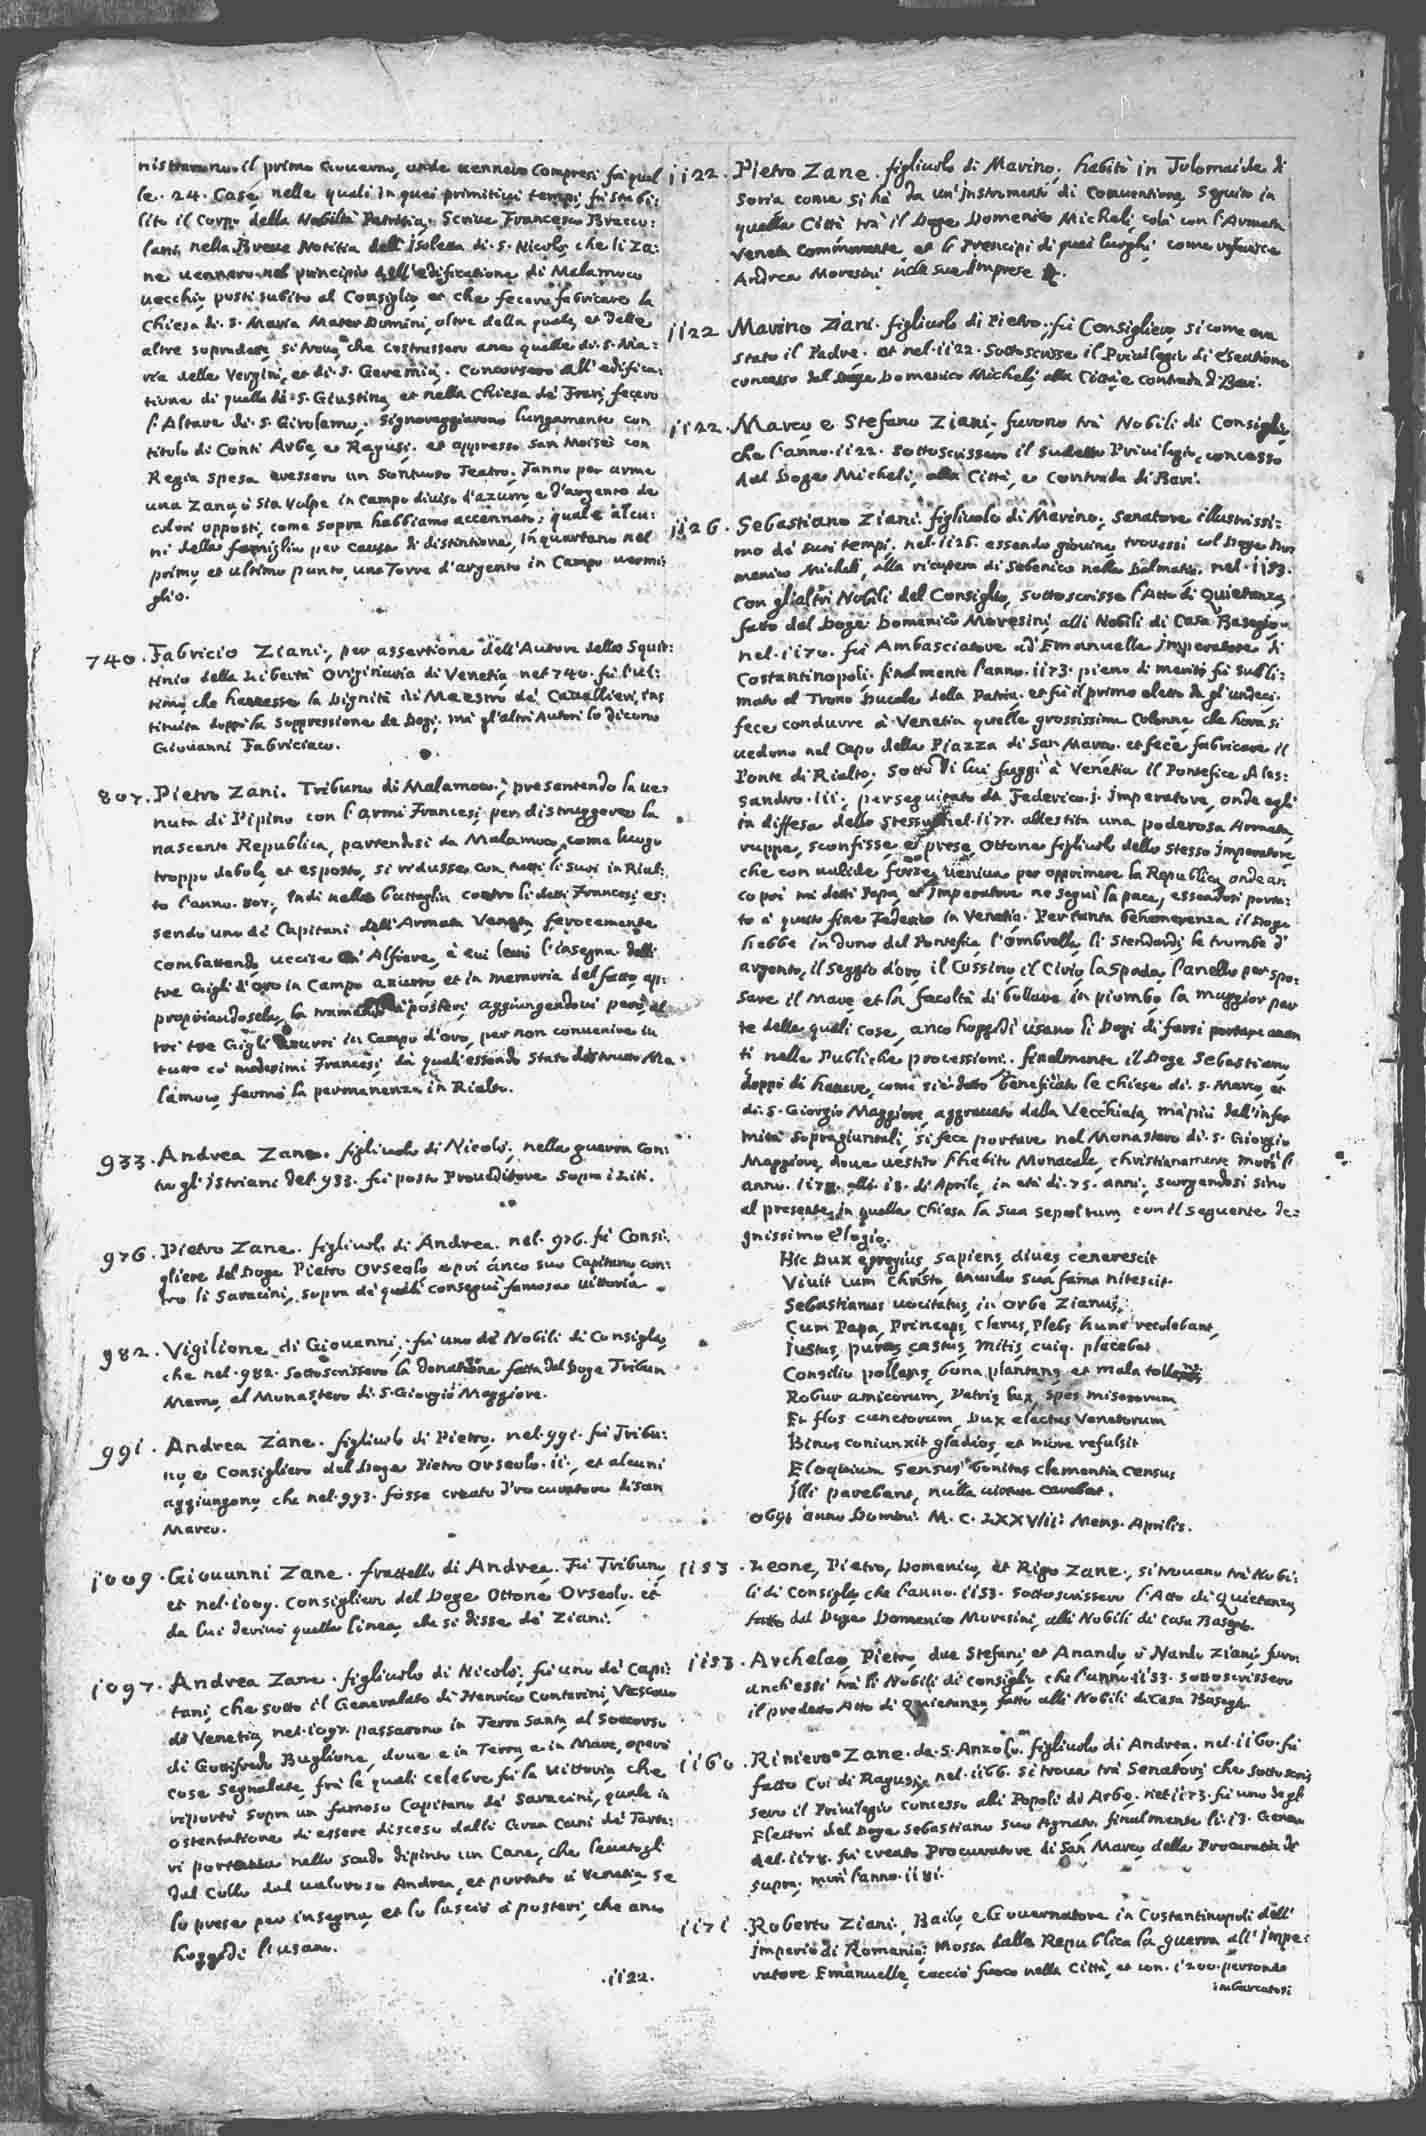 nistrarono il primo Gouerno, onde uennero compresi frà quel
le .24. Case, nelle quali in quei primitiui tempi fù stabi:
lito il Corpo della Nobiltà Patritia. Scriue Francesco Bracco:
lani nella Breue Notitia dell'Isoletta di .S. Nicolò, che li Za:
ne uennero nel principio dell'edificatione di Malamoco
uecchio, posti subito al Consiglio, et che fecero fabricare la
Chiesa di .S. Maria Mater Domini, oltre della quale, et delle
altre sopradette, si troua che costrussero anco quelle di .S. Ma:
ria delle Vergini, et di .S. Geremia. Concorsero all'edifica:
tione di quella di .S. Giustina, et nella Chiesa de' Frari fecero
l'Altare di .S. Girolamo. Signoreggiarono lungamente con
titolo di Conti Arbe, e Ragusi. et appresso San Moisè con
Regia spesa eressero un sontuoso Teatro. Fanno per arme
una Zana, ò sia Volpe in Campo diuiso d'azurro, e d'argento de
colori opposti, come sopra habbiamo accennato; quale alcu:
ni della famiglia per causa di distintione, inquartano nel
primo et ultimo punto, una Torre d'argento in Campo uermi:
glio.
740. Fabricio Ziani, per assertione dell'Autore dello Squit:
tinio della Libertà Originaria di Venetia nel 740. fù l'ul:
timo che hauesse la Dignità di Maestro de' Cauallieri, ins
tituita doppò la soppressione de Dogi. mà gl'altri Autori lo dicono
Giouanni Fabriciaco.
807. Pietro Zani. Tribuno di Malamoco; presentendo la ue:
nuta di Pipino con l'armi Francesi per distruggere la
nascente Republica, partendosi da Malamoco, come luogo
troppo debole, et esposto, si ridusse con tutti li suoi in Rial:
to l'anno .807. Indi nella battaglia contro li detti Francesi es:
sendo uno de' Capitani dell'Armata Veneta, ferocemente
combattendo uccise un'Alfiere, à cui leuò l'insegna delli
tre Gigli d'oro in Campo azurro, et in memoria del fatto, ap:
propriandosela, la tramandò à posteri, aggiungendoui però al
tri tre Gigli azurri in Campo d'oro, per non conuenire in
tutto co' medesimi Francesi; da quali essendo stato distrutto Ma:
lamoco, fermò la permanenza in Rialto.
933. Andrea Zane. figliuolo di Nicolò, nella guerra con:
tro gl'Istriani del .933. fù posto Proueditore sopra i liti.
976. Pietro Zane. figliuolo di Andrea. nel .976. fù Consi:
gliere del Doge Pietro Orseolo, e poi anco suo Capitano con:
tro li Saracini, sopra de' quali conseguì famosa uittoria.
982. Vigilione di Giouanni, fù uno de' Nobili di Consiglio,
che nel .982. sottoscrissero la donatione fatta dal Doge Tribun
Memo, al Monastero di .S. Giorgio Maggiore.
991. Andrea Zane. figliuolo di Pietro. nel .991. fù Tribu:
no, e Consigliero del Doge Pietro Orseolo .ii., et alcuni
aggiungono, che nel .993. fosse creato Procuratore di San
Marco.
1009. Giouanni Zane. fratello di Andrea. Fù Tribuno,
et nel .1009. Consigliero del Doge Ottone Orseolo. et
da lui deriuò quella linea, che si disse de' Ziani.
1097. Andrea Zane. figliuolo di Nicolò; fù uno de' Capi:
tani, che sotto il Generalato di Henrico Contarini, Vescouo
di Venetia, nel .1097. passarono in Terra Santa, al Soccorso
di Gottifredo Buglione, doue e in Terra, e in Mare, operò
cose segnalate, frà le quali celebre fù la Vittoria, che
riportò sopra un famoso Capitano de' Saracini, quale in
ostentatione di essere disceso dalli Gran Cani de' Tarta:
ri portaua nello scudo dipinto un Cane, che leuatogli
dal Collo dal ualoroso Andrea, et portato à Venetia, se
lo prese per insegna, et lo lasciò à posteri, che anco
hoggidi l'usano.
.1122.
1122. Pietro Zane. figliuolo di Marino, habitò in Tolomaide di
Soria, come si hà da un'Instrumento di Conuentione, seguito in
quella Città trà il Doge Domenico Micheli, colà con l'Armata
Veneta commorante, et li Prencipi di quei luoghi, come
Andrea Moresini nelle sue Imprese.
1122 Marino Ziani. figliuolo di Pietro, fù Consigliero, si come era
stato il Padre. et nel .1122. sottoscrisse il Priuilegio di esentione
concesso dal Doge Domenico Micheli, alla Città, e contrada di Bari.
1122. Marco, e Stefano Ziani, furono trà Nobili di Consiglio
che l'anno .1122. sottoscrissero il sudetto Priuilegio, concesso
dal Doge Micheli, alla Città, e Contrada di Bari.
1126. Sebastiano Ziani. figliuolo di Marino. Senatore illustrissi:
mo de' suoi tempi. nel .1126. essendo giouine, trouossi col Doge Do
menico Micheli, alla ricupera di Sebenico nella Dalmatia. nel .1153.
con gl'altri Nobili del Consiglio, sottoscrisse l'Atto di Quietanza,
fatto dal Doge Domenico Moresini, alli Nobili di Casa Basegio.
nel .1170. fù Ambasciatore ad Emanuelle Imperatore di
Costantinopoli. finalmente l'anno .1173. pieno di meriti fù subli:
mato al Trono Ducale della Patria. et fù il primo eletto da gl'undeci.
fece condurre à Venetia quelle grossissime Colonne, che hora si
uedono nel Capo della Piazza di San Marco. et fece fabricare il
Ponte di Rialto. Sotto di lui fuggì à Venetia il Pontefice Ales:
sandro .iii., perseguitato da Federico .i. Imperatore, onde egli
in diffesa dello stesso, nel .1177. allestita una poderosa Armata,
ruppe, sconfisse, et prese Ottone figliuolo dello stesso Imperatore
che con ualide forze ueniua per opprimere la Republica, onde an
co poi trà detti Papa, et Imperatore ne seguì la pace, essendosi porta:
to à questo fine Federico in Venetia. Per tanta benemerenza il Doge
hebbe in dono dal Pontefice l'Ombrella, li Stendardi, le trombe d'
argento, il Seggio d'oro, il Cussino, il Cirio, la Spada, l'anello per spo:
sare il Mare, et la facoltà di bollare in piombo, la maggior par
te delle quali cose, anco hoggidì usano li Dogi di farsi portare auan
ti nelle Publiche processioni. finalmente il Doge Sebastiano,
doppò di hauere, come si è detto, beneficato le Chiese di .S. Marco, et
di .S. Giorgio Maggiore, aggrauato dalla Vecchiaia, mà più dall'infer
mità sopragiuntali, si fece portare nel Monastero di .S. Giorgio
Maggiore, doue uestito l'habito Monacale, christianamente morì l'
anno .1178. alli .13. di Aprile, in età di .75. anni, scorgendosi sino
al presente, in quella Chiesa la sua sepoltura, con il seguente de:
gnissimo elogio.
Hic Dux egregius, sapiens, diues, cenerescit
Viuit cum Christo, Mundo sua fama nitescit.
Sebastianus uocitatus, in Orbe Zianus,
Cum Papa, Princeps, Clerus, Plebs hunc recolebant,
Iustus, purus, castus, mitis cuiq. placebat
Consilio pollens, bona plantans, et mala tollens
Robur amicorum, Patriæ lux, spes miserorum,
Et flos cunctorum, Dux electus Venetorum
Binos coniunxit gladios, et more refulsit
Eloquium, Sensus, bonitas, clementia, census
Illi parebant, nulla uirtute carebat.
Obijt anno Domini. M. C. LXXVIII. Mens. Aprilis.
1153. Leone, Pietro, Domenico, et Rigo Zane, si trouano trà Nobi:
li di Consiglio, che l'anno .1153. sottoscrissero l'Atto di Quietanza,
fatto dal Doge Domenico Moresini, alli Nobili di Casa Basegio.
1153. Archelao, Pietro, due Stefani, et Anando, ò Nardo Ziani, furo:
anch'essi trà li Nobili di Consiglio, che l'anno .1153. sottoscrissero
il predetto Atto di Quietanza, fatto alli Nobili di Casa Basegio.
1160. Riniero Zane. da .S. Anzolo. figliuolo di Andrea. nel .1160. fù
fatto Co: di Ragusi, e nel .1166. si troua trà Senatori, che sottoscris
sero il Priuilegio concesso alli Popoli di Arbe. nel .1173. fù uno de gl'
Elettori del Doge Sebastiano suo Agnato. finalmente li .13. Genaro
del .1178. fù creato Procuratore di San Marco, della Procuratia de
supra; morì l'anno .1181.
1171. Roberto Ziani, Bailo, e Gouernatore in Costantinopoli dell'
Imperio di Romania; Mossa dalla Republica la guerra all'Impe:
ratore Emanuelle, cacciò fuoco nella Città, et con .1200. persone
imbarcatosi